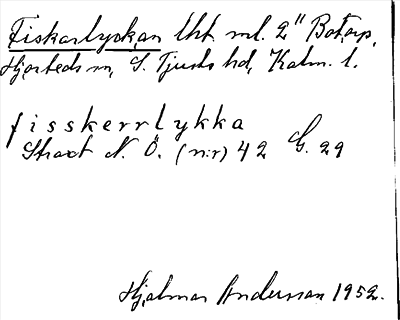 Fiskarlyckan lht. ml. 2" Botorp,
Hjorteds sn, S. Tjusts hd, Kalm. l.
fisskerrlykka
Straxt N. Ö. (nr) 42 G. 29
Hjalmar Andersson 1952.